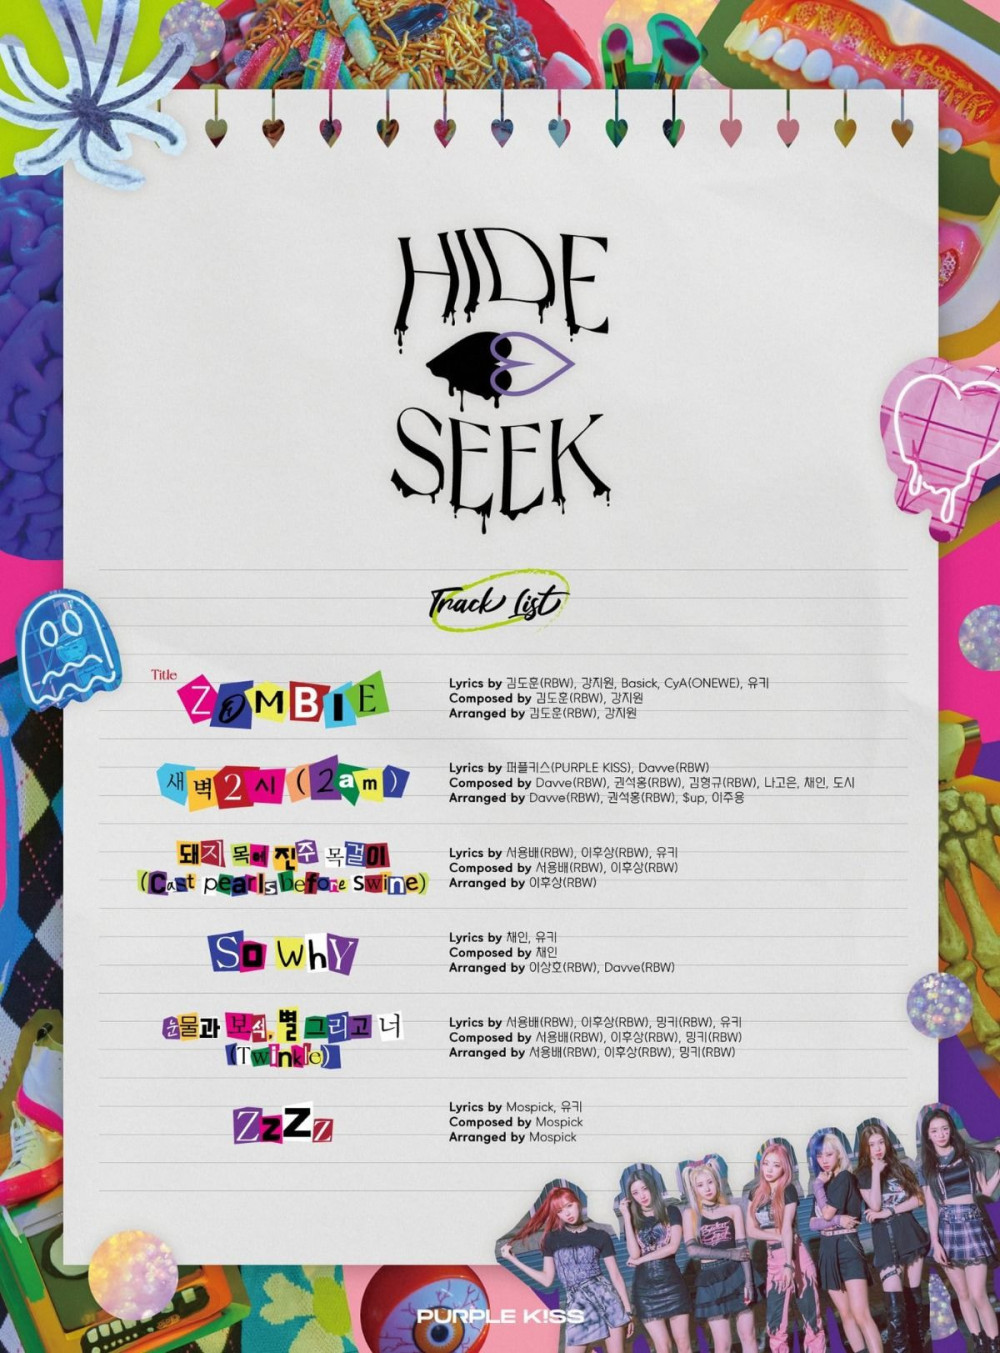 HIDE
SEEK
Track List
Title
ZOMBIE
Lyrics by 김도훈(RBW), 강지원, Basick, CyA(ONEWE), 유키
Composed by 김도훈(RBW), 강지원
Arranged by 김도훈(RBW), 강지원
새벽2시 (2am)
Lyrics by 퍼플키스(PURPLE KISS), Davve(RBW)
Composed by Davve(RBW), 권석홍(RBW), 김형규(RBW), 나고은, 채인, 도시
Arranged by Davve(RBW), 권석홍(RBW), $up, 이주용
돼지 목에 진주 목걸이
(Cast pearls before swine)
Lyrics by 서용배(RBW), 이후상(RBW), 유키
Composed by 서용배(RBW), 이후상(RBW)
Arranged by 이후상(RBW)
So whY
Lyrics by 채인, 유키
Composed by 채인
Arranged by 이상호(RBW), Davve(RBW)
눈물과 보석, 별 그리고 너
(Twinkle)
Lyrics by 서용배(RBW), 이후상(RBW), 밍키(RBW), 유키
Composed by 서용배(RBW), 이후상(RBW), 밍키(RBW)
Arranged by 서용배(RBW), 이후상(RBW), 밍키(RBW)
ZzZz
Lyrics by Mospick, 유키
Composed by Mospick
Arranged by Mospick
PURPLE K!SS